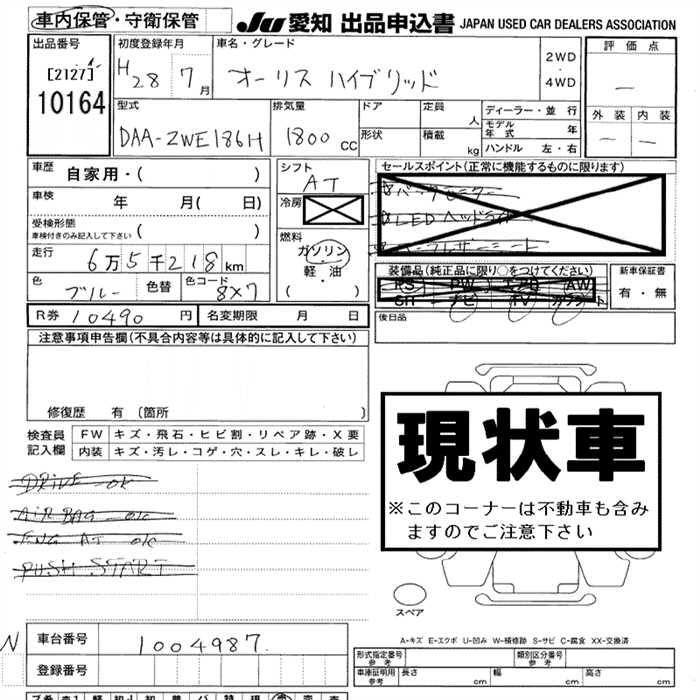 車内保管・守衛保管
JU 愛知 出品申込書 JAPAN USED CAR DEALERS ASSOCIATION
出品番号
[2127]
10164
初度登録年月
H 28 7月
車名・グレード
オーリス ハイブリッド
2WD
・
4WD
評価点
—
外装 内装
— —
型式
DAA-ZWE186H
排気量
1800 CC
ドア
形状
定員 人
積載 kg
ディーラー・並行
モデル年式 年
ハンドル 左・右
車歴 自家用・( )
車検 年 月( 日)
受検形態
車検付きのみ記入して下さい ( )
走行 6万5千218km
色 ブルー 色替 色コード 8X7
シフト
AT
冷房
燃料
ガソリン
・
軽・油
( ・ )
セールスポイント(正常に機能するものに限ります)
☆バックモニター
☆LEDヘッドライト
装備品(純正品に限り○をつけてください)
PS PW エアB AW
SR ナビ TV カワシート
新車保証書
有・無
R券 10490円 名変期限 月 日
後日品
注意事項申告欄(不具合内容等は具体的に記入して下さい)
修復歴 有 〔箇所
検査員記入欄
FW キズ・飛石・ヒビ割・リペア跡・X要
内装 キズ・汚レ・コゲ・穴・スレ・キレ・破レ
DRIVE - OK
AIR BAG - OK
ENG AT OK
PUSH START
現状車
※このコーナーは不動車も含みますのでご注意下さい
スペア
A-キズ E-エクボ U-凹み W-補修跡 S-サビ C-腐食 XX-交換済
N
車台番号 1004987.
登録番号
形式指定番号 参考
類別区分番号 参考
車庫証明用 参考 長さ cm 幅 cm 高さ cm